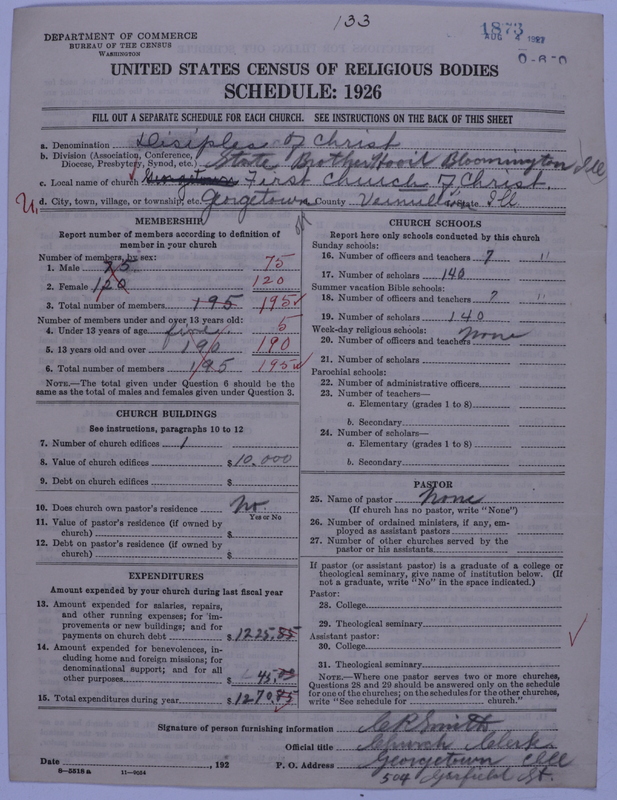 133
1873
AUG 4 1927
DEPARTMENT OF COMMERCE
BUREAU OF THE CENSUS
WASHINGTON
UNITED STATES CENSUS OF RELIGIOUS BODIES
SCHEDULE: 1926
FILL OUT A SEPARATE SCHEDULE FOR EACH CHURCH. SEE INSTRUCTIONS ON THE BACK OF THIS SHEET
a. Denomination Disiples of Christ
b. Division (Association, Conference, Diocese, Presbytery, Synod, etc.) State BrotherHood Bloomington Ill
c. Local name of church Georgetown First Church of Christ.
U. d. City, town, village, or township, etc. Georgetown County Vermillion State Ill
MEMBERSHIP
Report number of members according to definition of
member in your church
Number of members, by sex:
1. Male 75 75
2. Female 120 120
3. Total number of members 195 195
Number of members under and over 13 years old:
4. Under 13 years of age five 5
5. 13 years old and over 190 190
6. Total number of members 195 195
NOTE.—The total given under Question 6 should be the
same as the total of males and females given under Question 3.
CHURCH BUILDINGS
See instructions, paragraphs 10 to 12
7. Number of church edifices 1
8. Value of church edifices $ 10.000
9. Debt on church edifices $
10. Does church own pastor's residence No.
Yes or No
11. Value of pastor's residence (if owned by
church) $
12. Debt on pastor's residence (if owned by
church) $
EXPENDITURES
Amount expended by your church during last fiscal year
13. Amount expended for salaries, repairs,
and other running expenses; for im-
provements or new buildings; and for
payments on church debt $ 1225.85
14. Amount expended for benevolences, in-
cluding home and foreign missions; for
denominational support; and for all
other purposes $ 45.00
15. Total expenditures during year $ 1270.85
CHURCH SCHOOLS
Report here only schools conducted by this church
Sunday schools:
16. Number of officers and teachers 7 "
17. Number of scholars 140
Summer vacation Bible schools:
18. Number of officers and teachers ? "
19. Number of scholars 140
Week-day religious schools:
20. Number of officers and teachers None
21. Number of scholars
Parochial schools:
22. Number of administrative officers
23. Number of teachers—
a. Elementary (grades 1 to 8)
b. Secondary
24. Number of scholars—
a. Elementary (grades 1 to 8)
b. Secondary
PASTOR
25. Name of pastor None
(If church has no pastor, write "None")
26. Number of ordained ministers, if any, em-
ployed as assistant pastors
27. Number of other churches served by the
pastor or his assistants
If pastor (or assistant pastor) is a graduate of a college or
theological seminary, give name of institution below. (If
not a graduate, write "No" in the space indicated.)
Pastor:
28. College
29. Theological seminary
Assistant pastor:
30. College
31. Theological seminary
NOTE.—Where one pastor serves two or more churches,
Questions 28 and 29 should be answered only on the schedule
for one of the churches; on the schedules for the other churches,
write "See schedule for church."
Signature of person furnishing information C P Smith
Official title Church Clerk
Date , 192 P. O. Address Georgetown Ill
8—5818 a 11—9034 504 Garfield St.